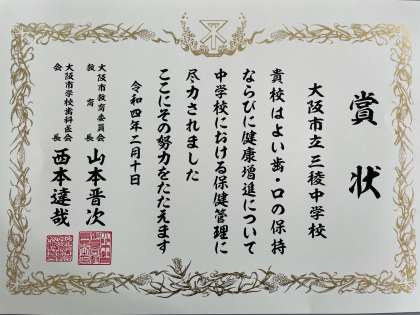 賞状
大阪市立三稜中学校
貴校はよい歯・口の保持
ならびに健康増進について
中学校における保健管理に
尽力されました
ここにその努力をたたえます
令和四年二月十日
大阪市教育委員会
教育長 山本晋次
大阪市学校歯科医会
会長 西本達哉